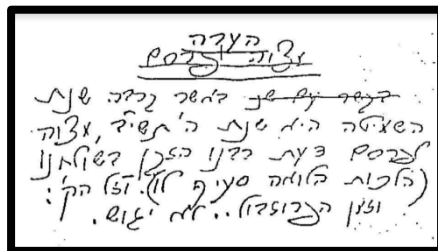 הערה
עצוה לפרסם
באשר גרבה שנת
השמיטה היא שנת ה'תשי"ב, עצוה
לפרסם דעת רבנו הזקן בשולחנו
(הלכות הלואה סעיף לו) וזל הק':
וזמן הפרוזבול.. לא יגוש.